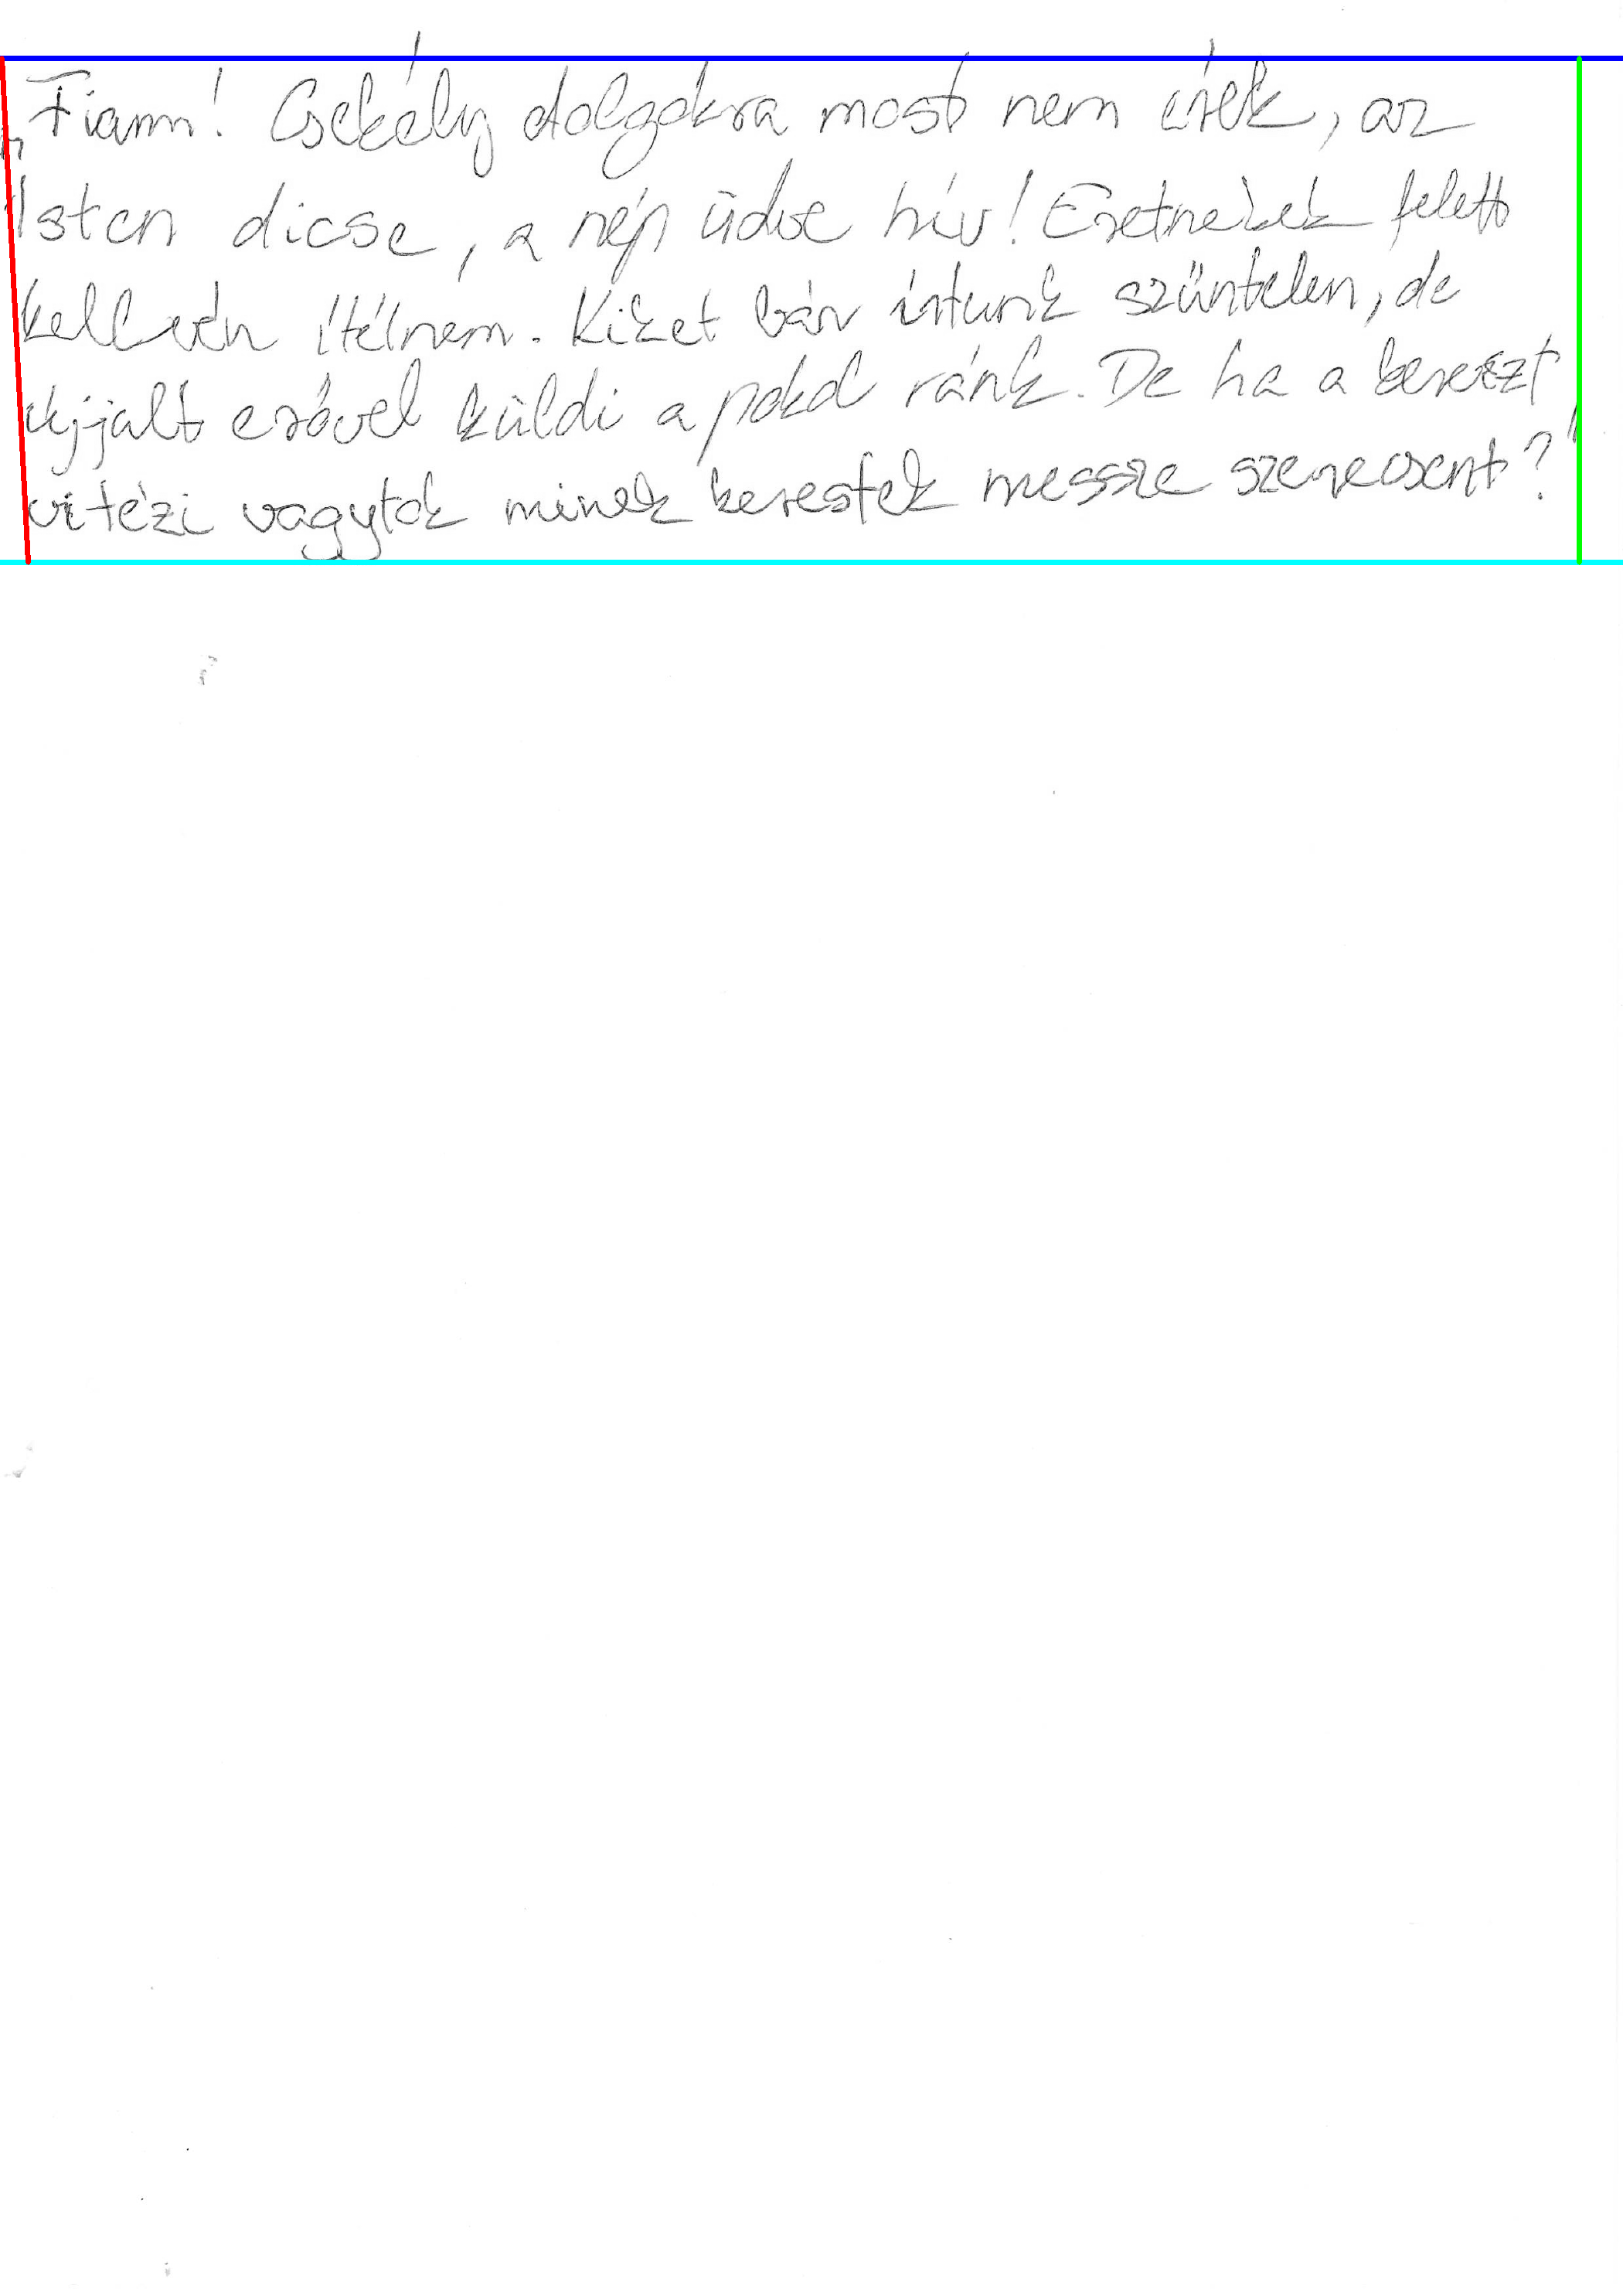 „Fiam! Csekély dolgokra most nem érek, az
Isten dicse, a nép üdve hív! Eretnekek felett
kellvén ítélnem. Kiket bár írtunk szüntelen, de
újjalt erővel küldi a pokol ránk. De ha a kereszt
vitézi vagytok minek kerestek messze szerecsent?"